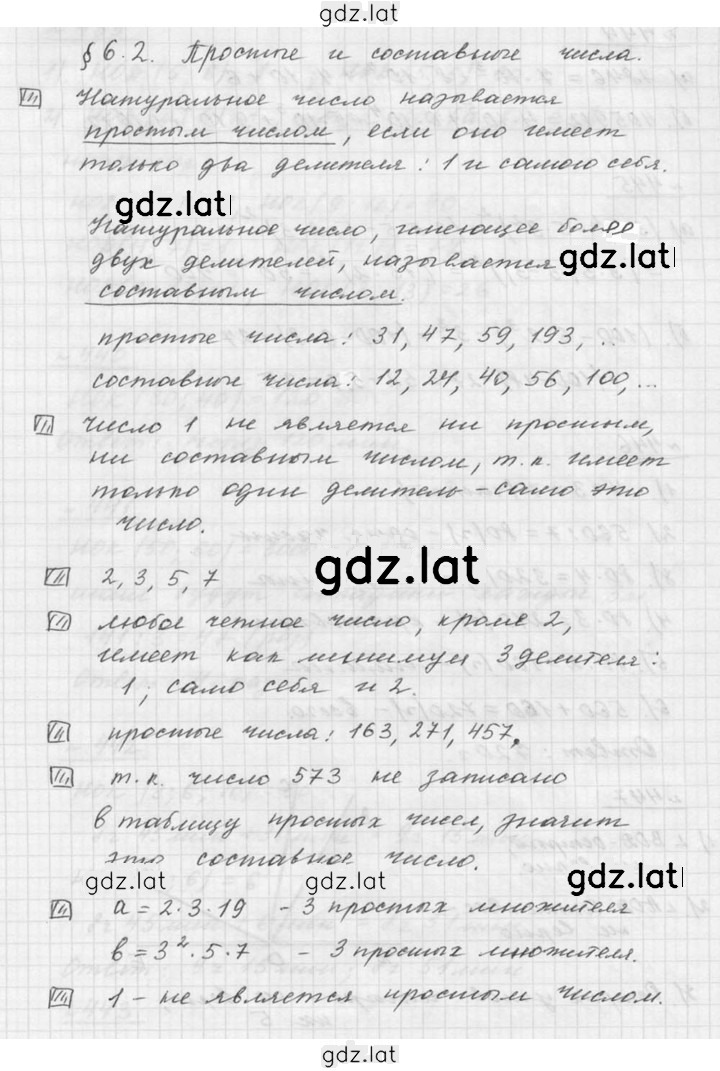 gdz.lat
§ 6.2. Простые и составные числа.
Натуральное число называется
простым числом, если оно имеет
только два делителя: 1 и самого себя.
gdz.lat
Натуральное число, имеющее более
двух делителей, называется
gdz.lat
составным числом.
простые числа: 31, 47, 59, 193, ...
составные числа: 12, 24, 40, 56, 100, ...
число 1 не является ни простым,
ни составным числом, т.к. имеет
только один делитель - само это
число.
2, 3, 5, 7
gdz.lat
любое четное число, кроме 2,
имеет как минимум 3 делителя:
1; само себя и 2.
простые числа: 163, 271, 457.
т.к. число 573 не записано
в таблицу простых чисел, значит
это составное число.
gdz.lat
gdz.lat
a = 2·3·19 - 3 простых множителя
b = 3²·5·7 - 3 простых множителя.
1 - не является простым числом.
gdz.lat